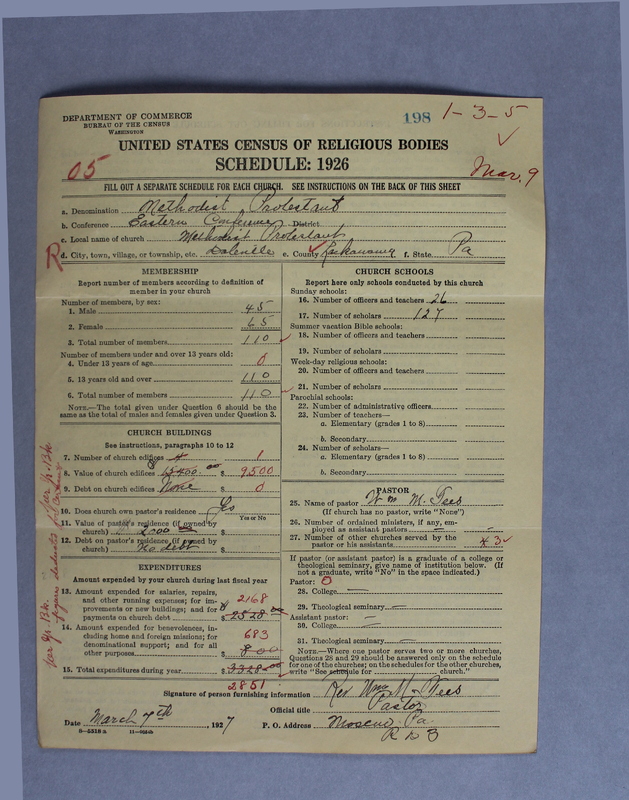 DEPARTMENT OF COMMERCE
BUREAU OF THE CENSUS
WASHINGTON
198 1-3-5
UNITED STATES CENSUS OF RELIGIOUS BODIES
05 SCHEDULE: 1926 Mar. 9
FILL OUT A SEPARATE SCHEDULE FOR EACH CHURCH. SEE INSTRUCTIONS ON THE BACK OF THIS SHEET
a. Denomination Methodist Protestant
b. Conference Eastern Conference District
c. Local name of church Methodist Protestant
R d. City, town, village, or township, etc. Daleville e. County Lackawanna f. State Pa
MEMBERSHIP
Report number of members according to definition of
member in your church
Number of members, by sex:
1. Male 45
2. Female 65
3. Total number of members 110
Number of members under and over 13 years old:
4. Under 13 years of age 0
5. 13 years old and over 110
6. Total number of members 110
NOTE.—The total given under Question 6 should be the
same as the total of males and females given under Question 3.
CHURCH BUILDINGS
See instructions, paragraphs 10 to 12
7. Number of church edifices 1
8. Value of church edifices $ 9500
9. Debt on church edifices None $ 0
10. Does church own pastor's residence Yes
Yes or No
11. Value of pastor's residence (if owned by
church) 2000 $
12. Debt on pastor's residence (if owned by
church) No debt $
EXPENDITURES
Amount expended by your church during last fiscal year
13. Amount expended for salaries, repairs,
and other running expenses; for im- 2168
provements or new buildings; and for
payments on church debt $ 2528
14. Amount expended for benevolences, in-
cluding home and foreign missions; for 683
denominational support; and for all
other purposes $ 800
15. Total expenditures during year $ 3328.00
2851
CHURCH SCHOOLS
Report here only schools conducted by this church
Sunday schools:
16. Number of officers and teachers 26
17. Number of scholars 127
Summer vacation Bible schools:
18. Number of officers and teachers
19. Number of scholars
Week-day religious schools:
20. Number of officers and teachers
21. Number of scholars
Parochial schools:
22. Number of administrative officers
23. Number of teachers—
a. Elementary (grades 1 to 8)
b. Secondary
24. Number of scholars—
a. Elementary (grades 1 to 8)
b. Secondary
PASTOR
25. Name of pastor Wm M. Tees
(If church has no pastor, write "None")
26. Number of ordained ministers, if any, em-
ployed as assistant pastors —
27. Number of other churches served by the
pastor or his assistants 3
If pastor (or assistant pastor) is a graduate of a college or
theological seminary, give name of institution below. (If
not a graduate, write "No" in the space indicated.)
Pastor: 0
28. College —
29. Theological seminary —
Assistant pastor: —
30. College —
31. Theological seminary —
NOTE.—Where one pastor serves two or more churches,
Questions 28 and 29 should be answered only on the schedule
for one of the churches; on the schedules for the other churches,
write "See schedule for church."
Signature of person furnishing information Rev Wm M. Tees
Official title Pastor
Date March 7th, 1927 P. O. Address Moscow Pa.
R D 3
8-5318 A